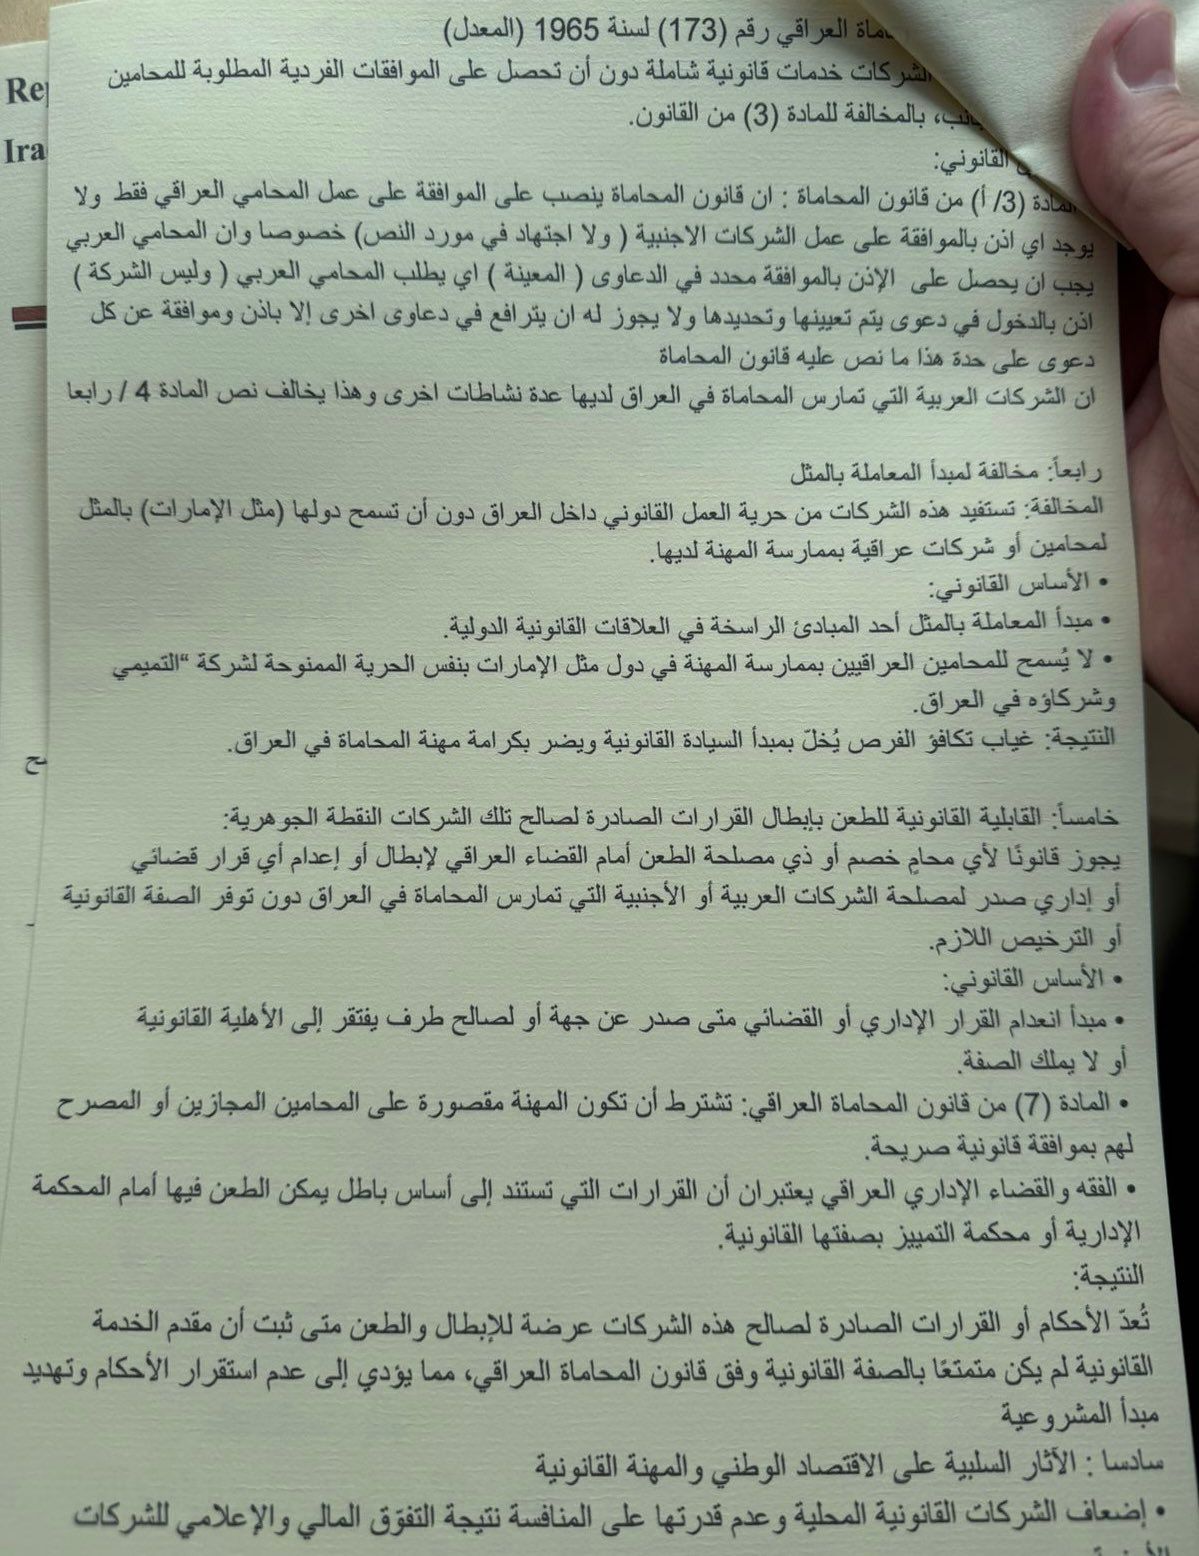 Rep
Ira
العراقي رقم (173) لسنة 1965 (المعدل)
الشركات خدمات قانونية شاملة دون أن تحصل على الموافقات الفردية المطلوبة للمحامين
بالمخالفة للمادة (3) من القانون.
القانوني:
المادة (3/ أ) من قانون المحاماة : ان قانون المحاماة ينصب على الموافقة على عمل المحامي العراقي فقط ولا
يوجد اي اذن بالموافقة على عمل الشركات الاجنبية ( ولا اجتهاد في مورد النص) خصوصا وان المحامي العربي
يجب ان يحصل على الإذن بالموافقة محدد في الدعاوى ( المعينة ) اي يطلب المحامي العربي ( وليس الشركة )
اذن بالدخول في دعوى يتم تعيينها وتحديدها ولا يجوز له ان يترافع في دعاوى اخرى إلا باذن وموافقة عن كل
دعوى على حدة هذا ما نص عليه قانون المحاماة
ان الشركات العربية التي تمارس المحاماة في العراق لديها عدة نشاطات اخرى وهذا يخالف نص المادة 4 / رابعا
رابعاً: مخالفة لمبدأ المعاملة بالمثل
المخالفة: تستفيد هذه الشركات من حرية العمل القانوني داخل العراق دون أن تسمح دولها (مثل الإمارات) بالمثل
لمحامين أو شركات عراقية بممارسة المهنة لديها.
• الأساس القانوني:
• مبدأ المعاملة بالمثل أحد المبادئ الراسخة في العلاقات القانونية الدولية.
• لا يُسمح للمحامين العراقيين بممارسة المهنة في دول مثل الإمارات بنفس الحرية الممنوحة لشركة “التميمي
وشركاؤه في العراق.
النتيجة: غياب تكافؤ الفرص يُخلّ بمبدأ السيادة القانونية ويضر بكرامة مهنة المحاماة في العراق.
خامساً: القابلية القانونية للطعن بإبطال القرارات الصادرة لصالح تلك الشركات النقطة الجوهرية:
يجوز قانونًا لأي محامٍ خصم أو ذي مصلحة الطعن أمام القضاء العراقي لإبطال أو إعدام أي قرار قضائي
أو إداري صدر لمصلحة الشركات العربية أو الأجنبية التي تمارس المحاماة في العراق دون توفر الصفة القانونية
أو الترخيص اللازم.
• الأساس القانوني:
• مبدأ انعدام القرار الإداري أو القضائي متى صدر عن جهة أو لصالح طرف يفتقر إلى الأهلية القانونية
أو لا يملك الصفة.
• المادة (7) من قانون المحاماة العراقي: تشترط أن تكون المهنة مقصورة على المحامين المجازين أو المصرح
لهم بموافقة قانونية صريحة.
• الفقه والقضاء الإداري العراقي يعتبران أن القرارات التي تستند إلى أساس باطل يمكن الطعن فيها أمام المحكمة
الإدارية أو محكمة التمييز بصفتها القانونية.
النتيجة:
تُعدّ الأحكام أو القرارات الصادرة لصالح هذه الشركات عرضة للإبطال والطعن متى ثبت أن مقدم الخدمة
القانونية لم يكن متمتعًا بالصفة القانونية وفق قانون المحاماة العراقي، مما يؤدي إلى عدم استقرار الأحكام وتهديد
مبدأ المشروعية
سادسا : الآثار السلبية على الاقتصاد الوطني والمهنة القانونية
• إضعاف الشركات القانونية المحلية وعدم قدرتها على المنافسة نتيجة التفوّق المالي والإعلامي للشركات